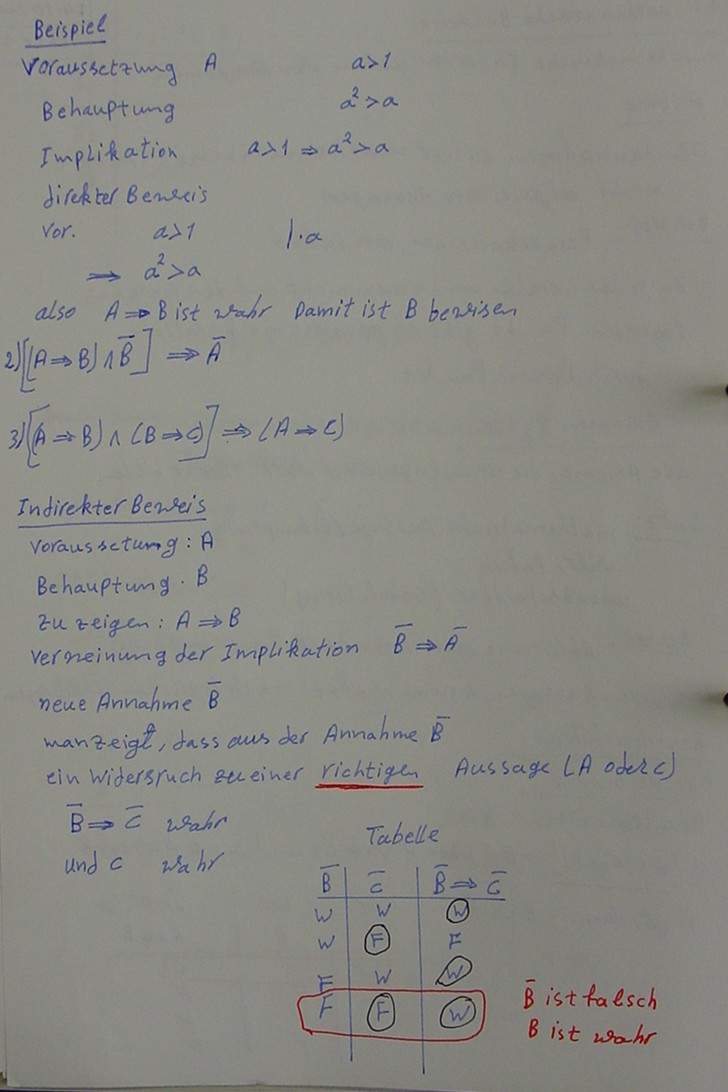 Beispiel
Voraussetzung A a>1
Behauptung a²>a
Implikation a>1 ⇒ a²>a
direkter Beweis
Vor. a>1 |·a
⇒ a²>a
also A ⇒ B ist wahr Damit ist B bewisen
2) [(A ⇒ B) ∧ B̅] ⇒ A̅
3) [(A ⇒ B) ∧ (B ⇒ C)] ⇒ (A ⇒ C)
Indirekter Beweis
Voraussetung : A
Behauptung . B
zu zeigen : A ⇒ B
Verneinung der Implikation B̅ ⇒ A̅
neue Annahme B̅
man zeigt, dass aus der Annahme B̅
ein Widersruch zu einer richtigen Aussage (A oder C)
B̅ ⇒ C̅ wahr
und C wahr
Tabelle
B̅ C̅ B̅ ⇒ C̅
W W W
W F F
F W W
F F W
B̅ ist falsch
B ist wahr